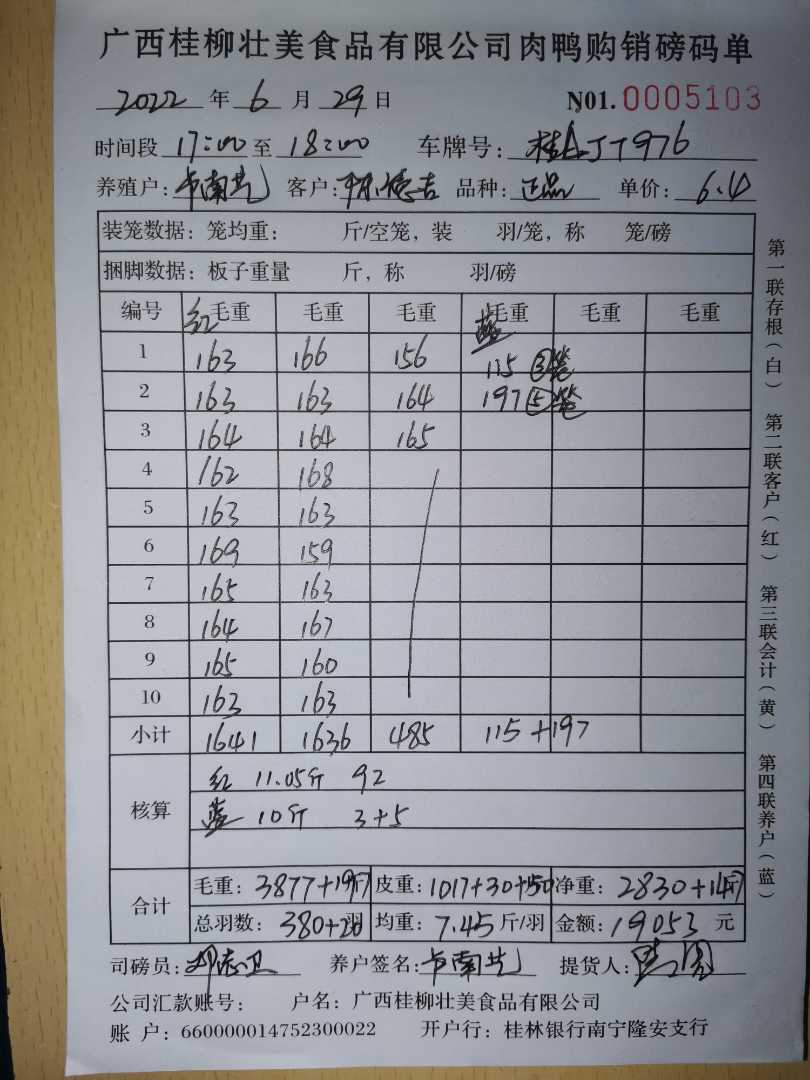 广西桂柳壮美食品有限公司肉鸭购销磅码单
2022 年 6 月 29 日 N01. 0005103
时间段 17:00 至 18:00 车牌号: 桂AJT976
养殖户: 客户: 品种: 正品 单价: 6.4
装笼数据: 笼均重: 斤/空笼, 装 羽/笼, 称 笼/磅
捆脚数据: 板子重量 斤, 称 羽/磅
编号 红 毛重 毛重 毛重 蓝 毛重 毛重 毛重
1 163 166 156 115 ③笼
2 163 163 164 197 ⑤笼
3 164 164 165
4 162 168
5 163 163
6 169 159
7 165 163
8 164 167
9 165 160
10 163 163
小计 1641 1636 485 115+197
核算 红 11.05斤 92
蓝 10斤 3+5
合计 毛重: 3877+197 皮重: 1017+30+50 净重: 2830+147
总羽数: 380+20 羽 均重: 7.45 斤/羽 金额: 19053 元
司磅员: 养户签名: 提货人:
公司汇款账号: 户名: 广西桂柳壮美食品有限公司
账 户: 660000014752300022 开户行: 桂林银行南宁隆安支行
第一联存根(白) 第二联客户(红) 第三联会计(黄) 第四联养户(蓝)